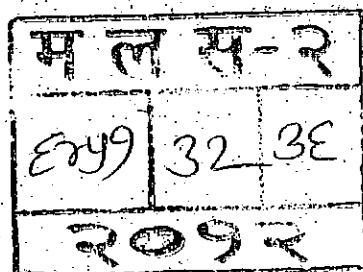 म ल स - २
६२५१ ३२ ३६
२०१२